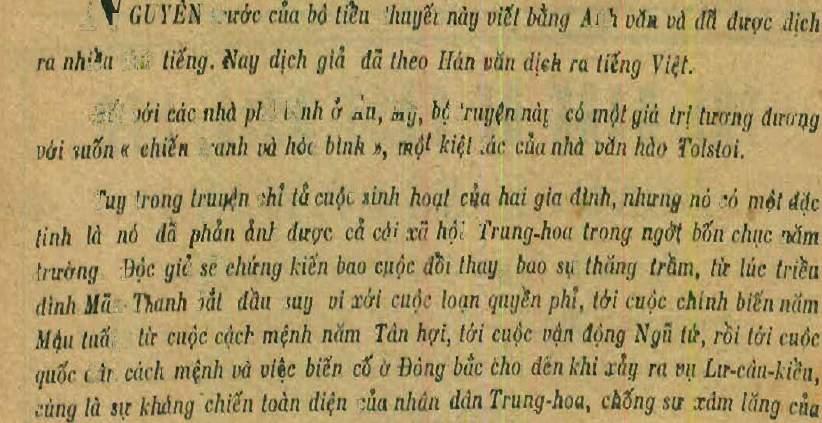 NGUYÊN trước của bộ tiểu thuyết này viết bằng Anh văn và đã được dịch
ra nhiều thứ tiếng. Nay dịch giả đã theo Hán văn dịch ra tiếng Việt.
với các nhà phê bình ở Âu, Mỹ, bộ truyện này có một giá trị tương đương
với cuốn « chiến tranh và hòa bình », một kiệt tác của nhà văn hào Tolstoi.
Tuy trong truyện chỉ tả cuộc sinh hoạt của hai gia đình, nhưng nó có một đặc
tính là nó đã phản ảnh được cả cõi xã hội Trung-hoa trong ngót bốn chục năm
trường Độc giả sẽ chứng kiến bao cuộc đồi thay bao sự thăng trầm, từ lúc triều
đình Mãn Thanh bắt đầu suy vi với cuộc loạn quyền phỉ, tới cuộc chính biến năm
Mậu tuất từ cuộc cách mệnh năm Tân hợi, tới cuộc vận động Ngũ tứ, rồi tới cuộc
quốc dân cách mệnh và việc biến cố ở Đông bắc cho đến khi xảy ra vụ Lư-câu-kiều,
cùng là sự kháng chiến toàn diện của nhân dân Trung-hoa, chống sự xâm lăng của